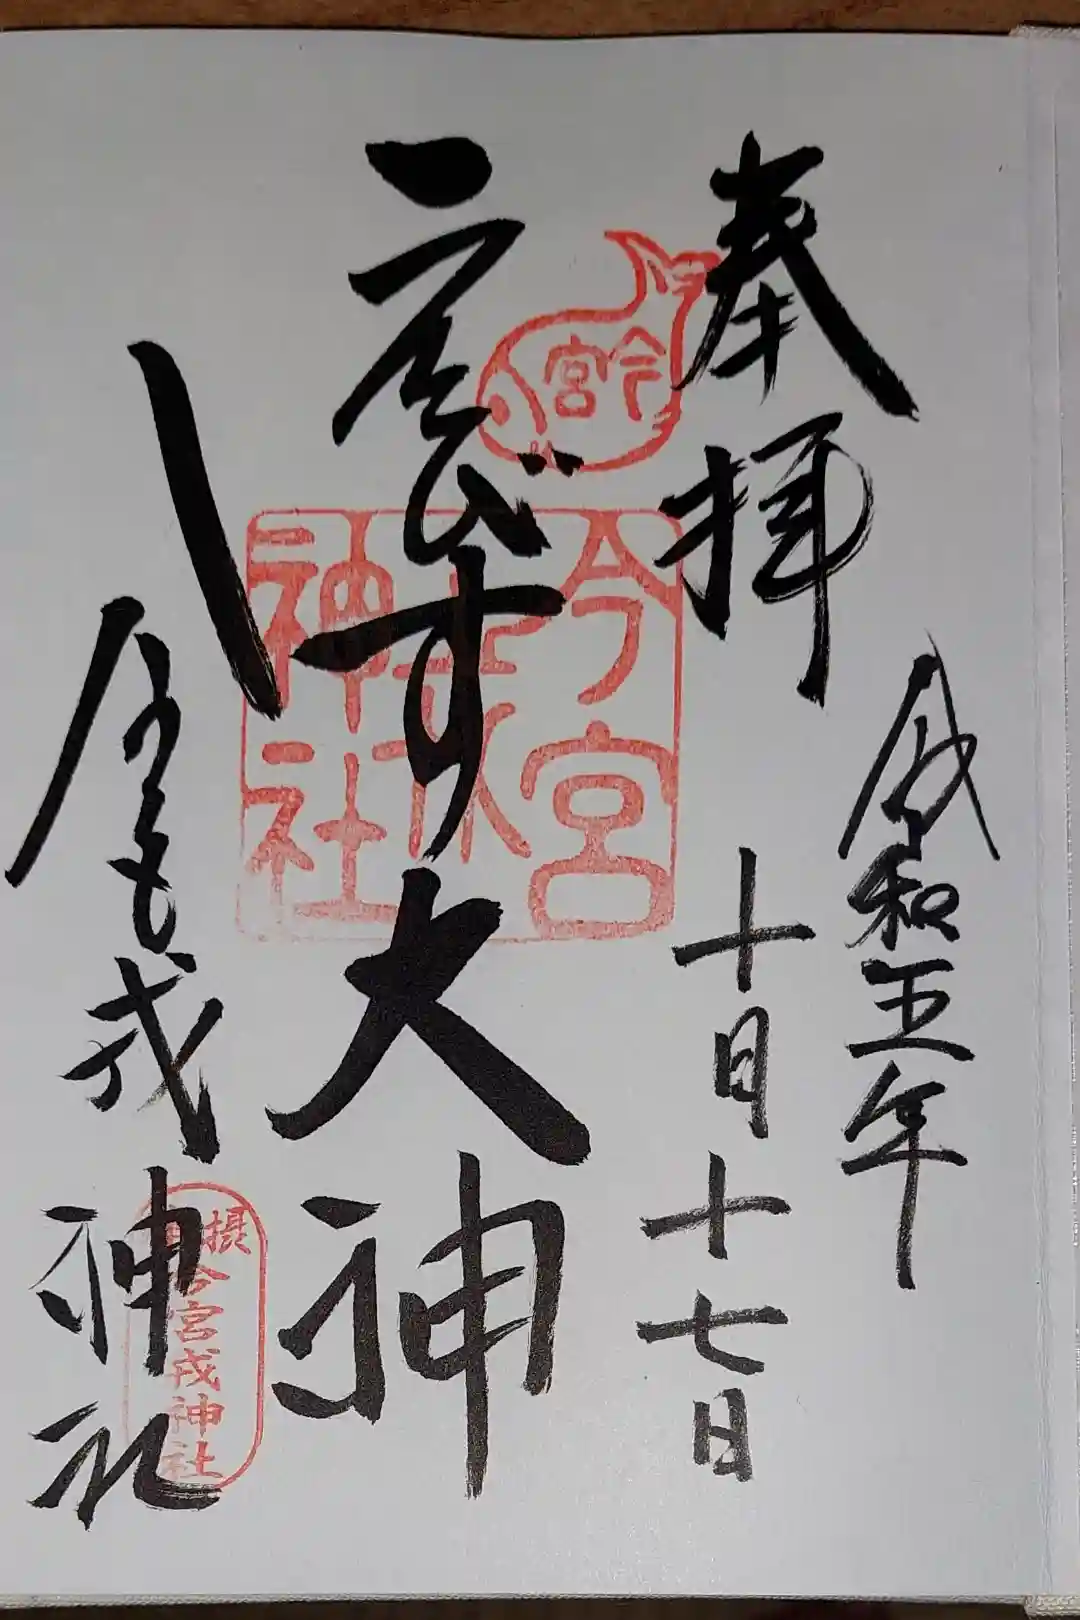 奉拝
令和五年
十月十七日
今宮
えびす大神
今宮
戎
神社
今宮戎神社
摂
今宮戎神社